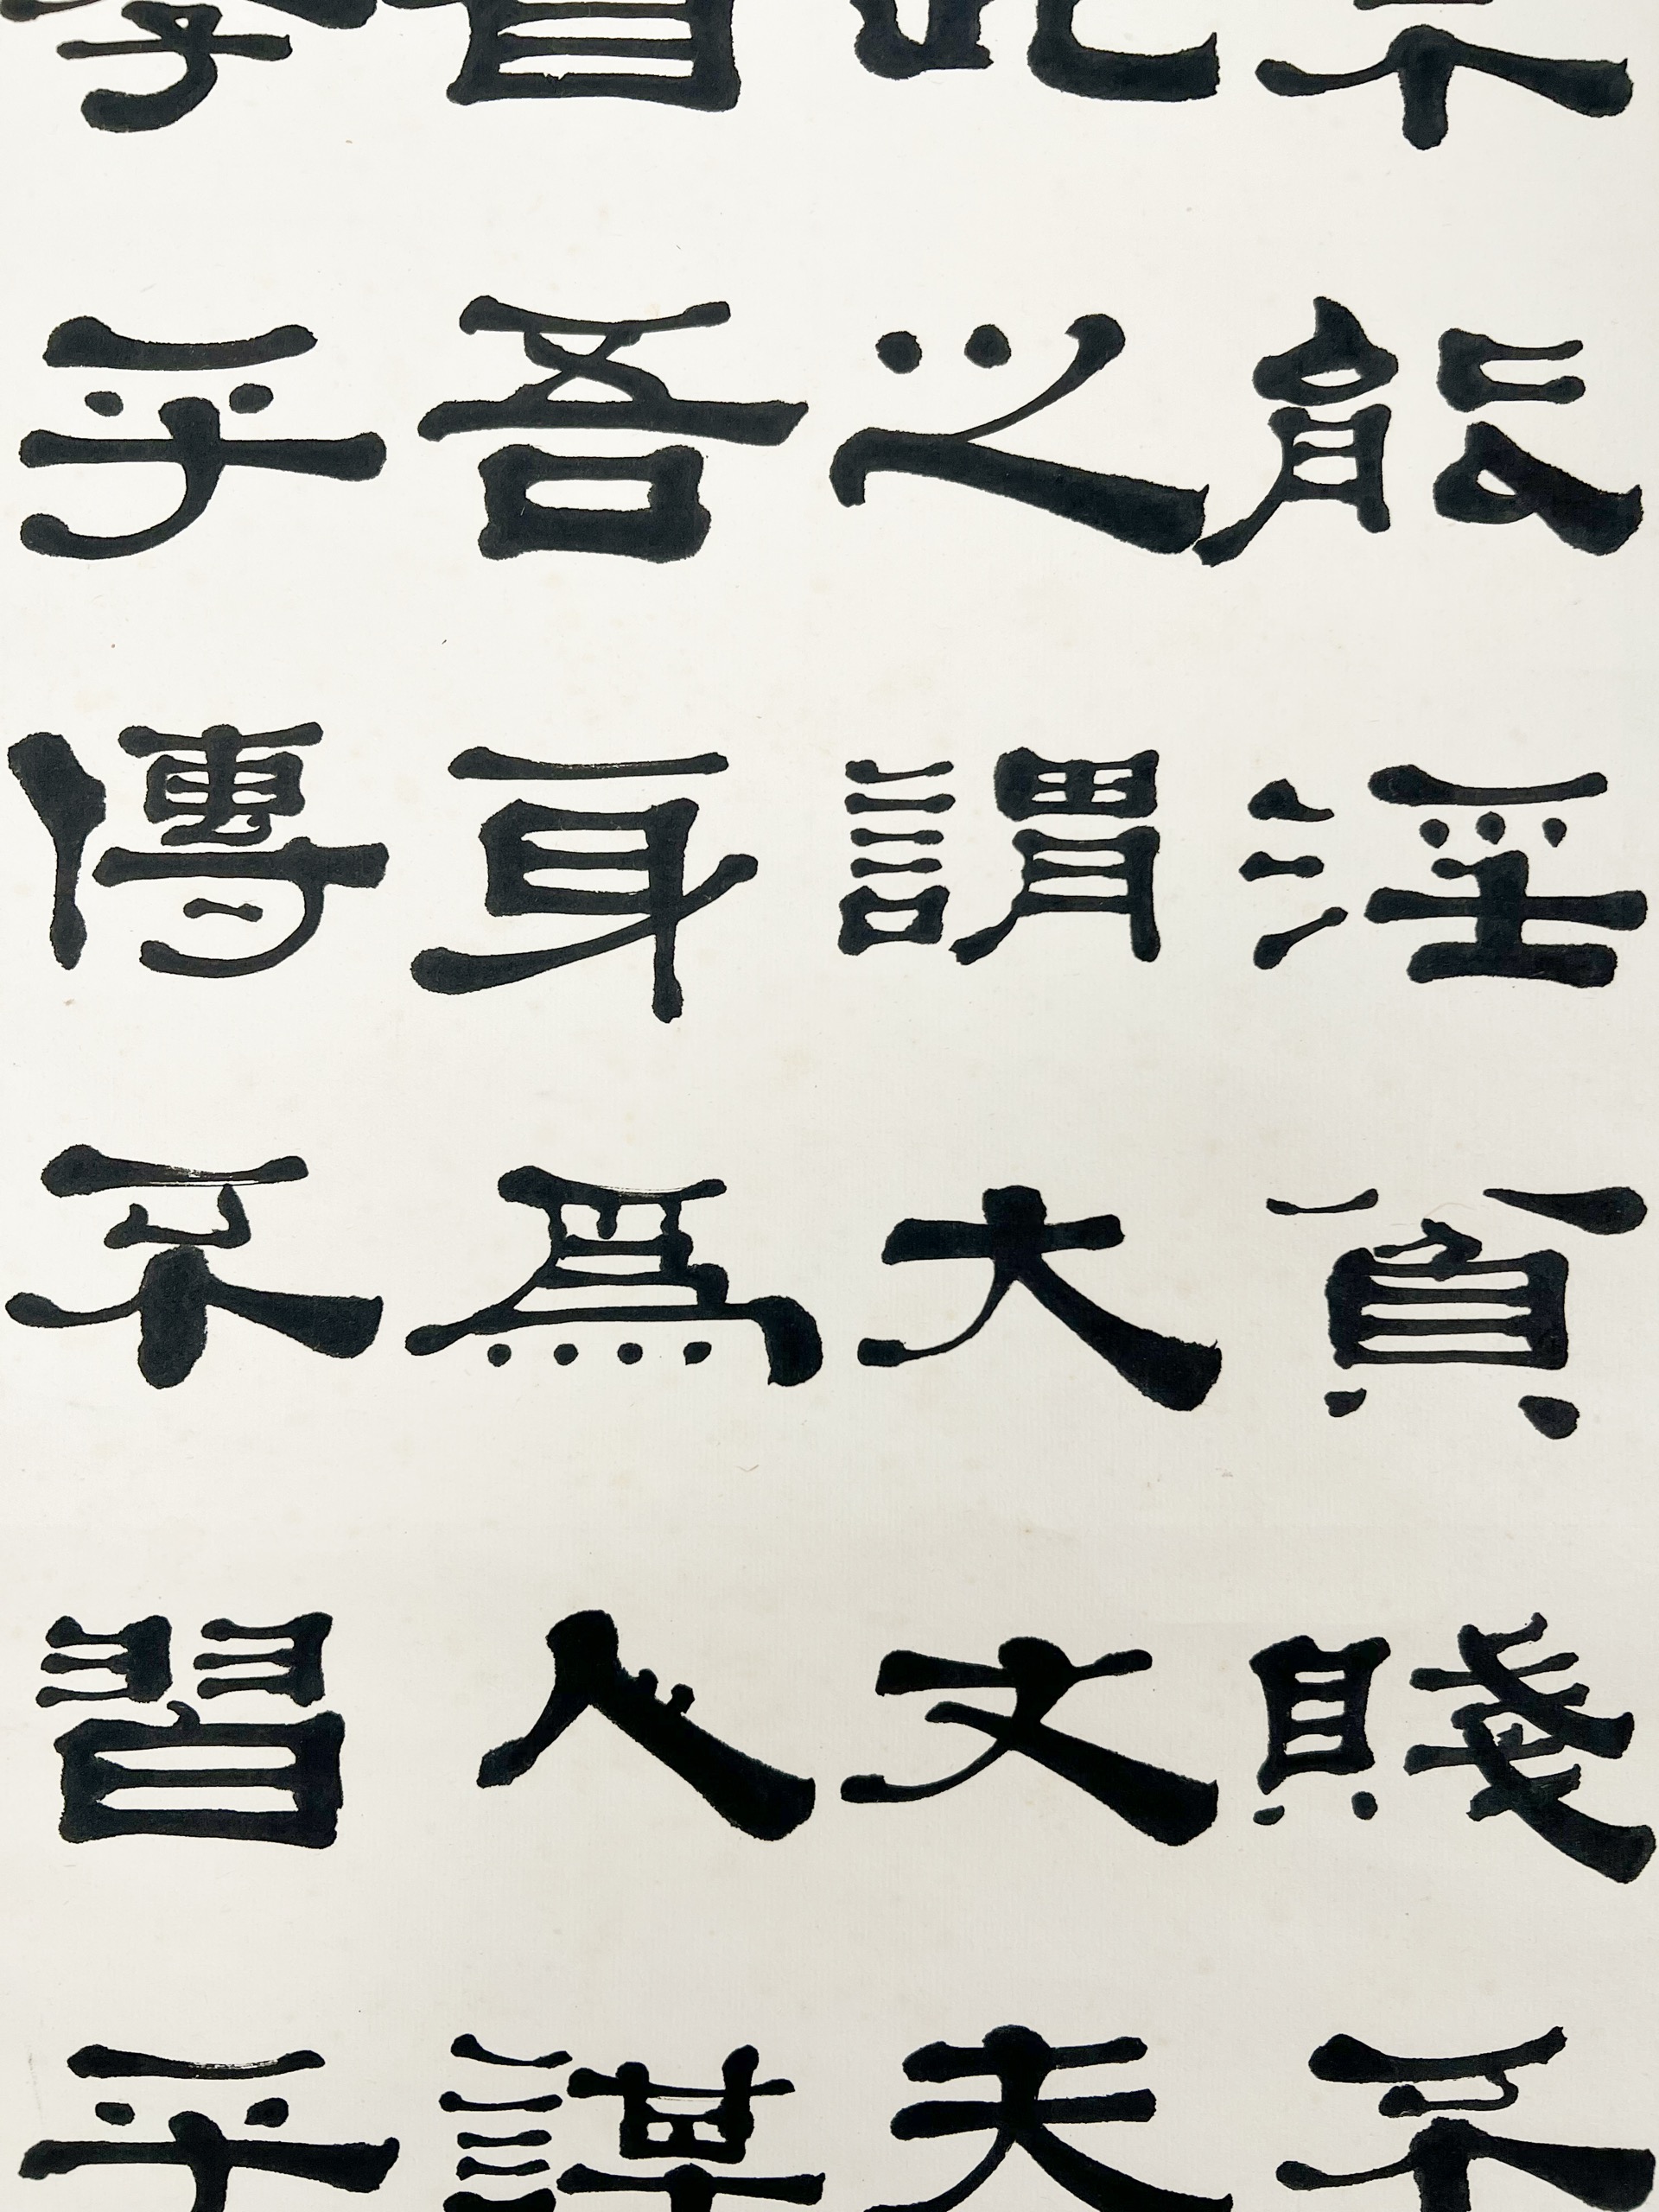 不能淫貧賤不
此之謂大丈夫
省吾身爲人謀
乎傳不習乎